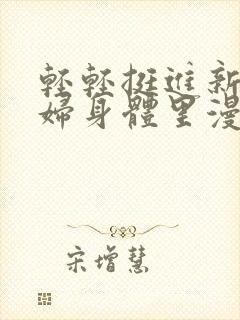 輕輕挺進新
婦身體里漫
宋增慧